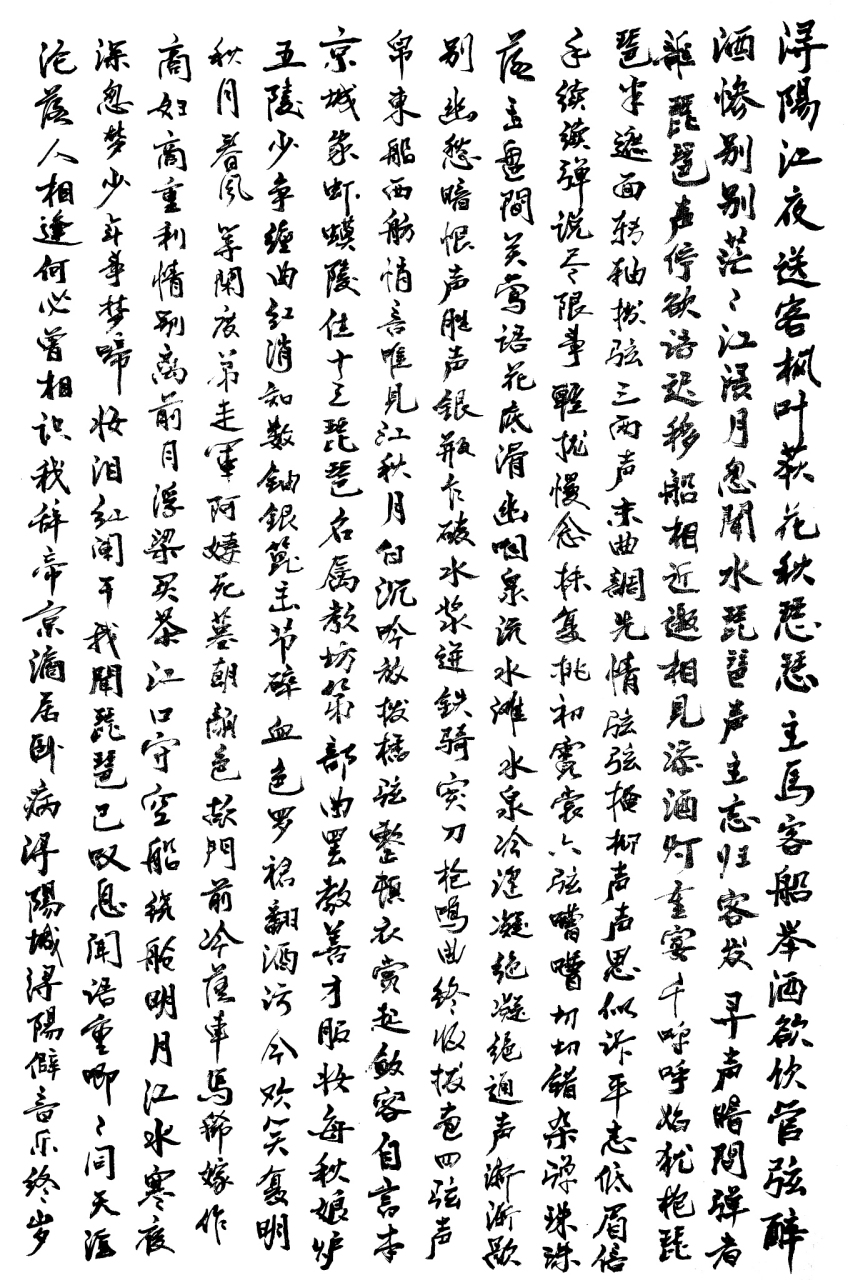 浔陽江夜送客枫叶荻花秋瑟瑟主馬客船举酒欲饮管弦醉
酒惨别别茫々江浸月忽聞水琵琶声主忘归客发寻声暗問弹者
誰琵琶声停欲语迟移船相近邀相見添酒灯重宴千呼呼始犹抱琵
琶半遮面轉軸拨弦三两声未曲調先情弦弦掩抑声声思似诉平志低眉信
手续续弹说尽限事輕拢慢念抹复挑初霓裳六弦嘈嘈切切錯杂弹珠珠
落玉盘間关莺语花底滑幽咽泉流水滩水泉冷涩凝绝凝绝通声渐渐歇
别幽愁暗恨声胜声銀瓶乍破水浆迸铁骑突刀枪鳴曲终收拨画四弦声
帛東船西舫悄言唯見江秋月白沉吟放拨插弦整頓衣裳起斂容自言本
京城家虾蟆陵住十三琵琶名属教坊第部曲罢教善才服妆每秋娘妒
五陵少争缠曲红消知数鈿銀篦击节碎血色罗裙翻酒污今欢笑复明
秋月春风等闌度弟走軍阿姨死暮朝顏色故門前冷落車馬稀嫁作
商妇商重利情别离前月浮梁买茶江口守空船绕舱明月江水寒夜
深忽梦少年事梦啼妆泪红阑干我聞琵琶已叹息闻语重唧々同天涯
沦落人相逢何必曾相识我辞帝京谪居卧病浔陽城浔陽僻音乐终岁